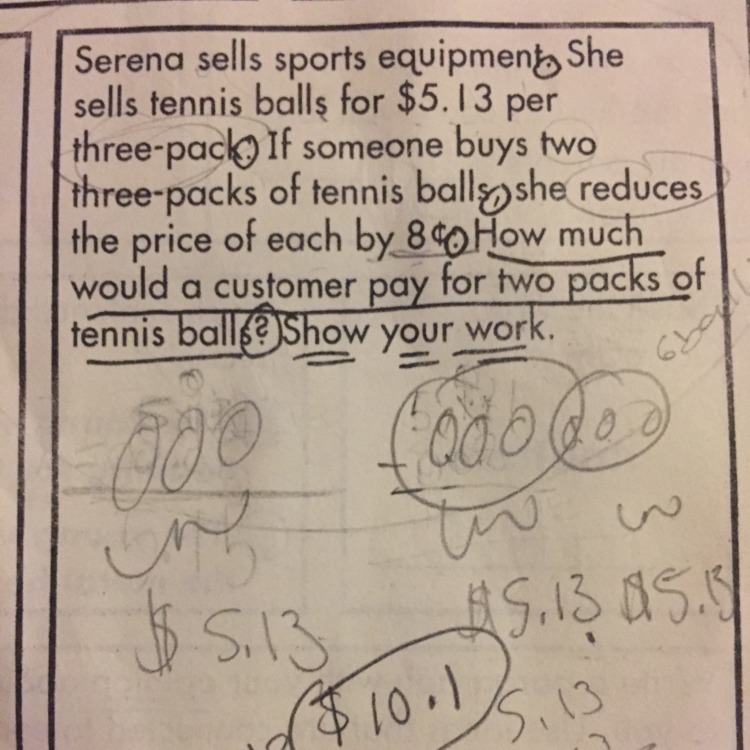 Serena sells sports equipment. She
sells tennis balls for $5.13 per
three-pack. If someone buys two
three-packs of tennis balls, she reduces
the price of each by 8¢. How much
would a customer pay for two packs of
tennis balls? Show your work.
$5.13
$5.13 $5.13
$10.1
5.13